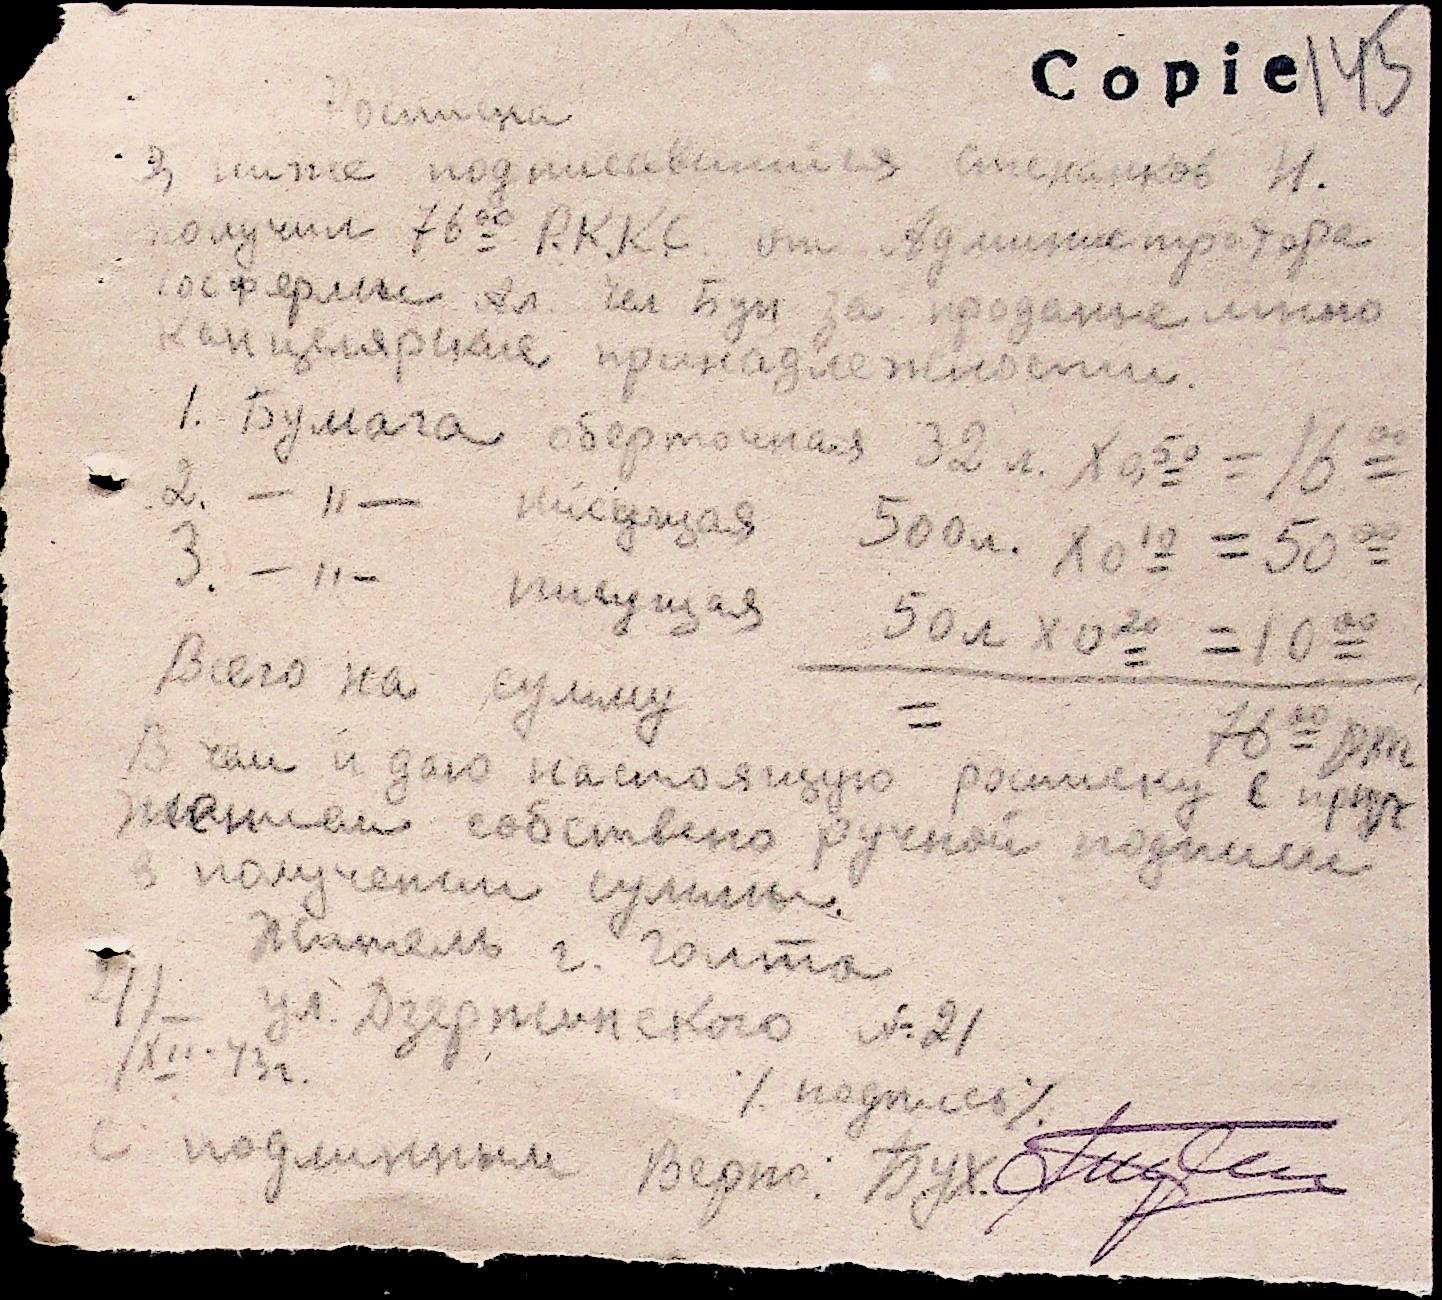 Copie 145
Росписка
Я ниже подписавшийся Степанков И.
получил 76 00 Р.К.К.С. от Администратора
Госфермы Ал. Чел Бун за проданые мною
Канцелярские принадлежности.
1. Бумага оберточная 32 л. X 0,50 = 16 00
2. — " — писущая 500 л. X 0 10 = 50 00
3. — " — писущая 50 л X 0 20 = 10 00
Всего на сумму = 76 00
В чем и даю настоящую росписку с
собствено ручной подписи
в получении суммы.
Житель г. Голта
ул. Дзержинского № 21
21/XII-43г.
/. подпись /.
С подлинным Верно: Бух.